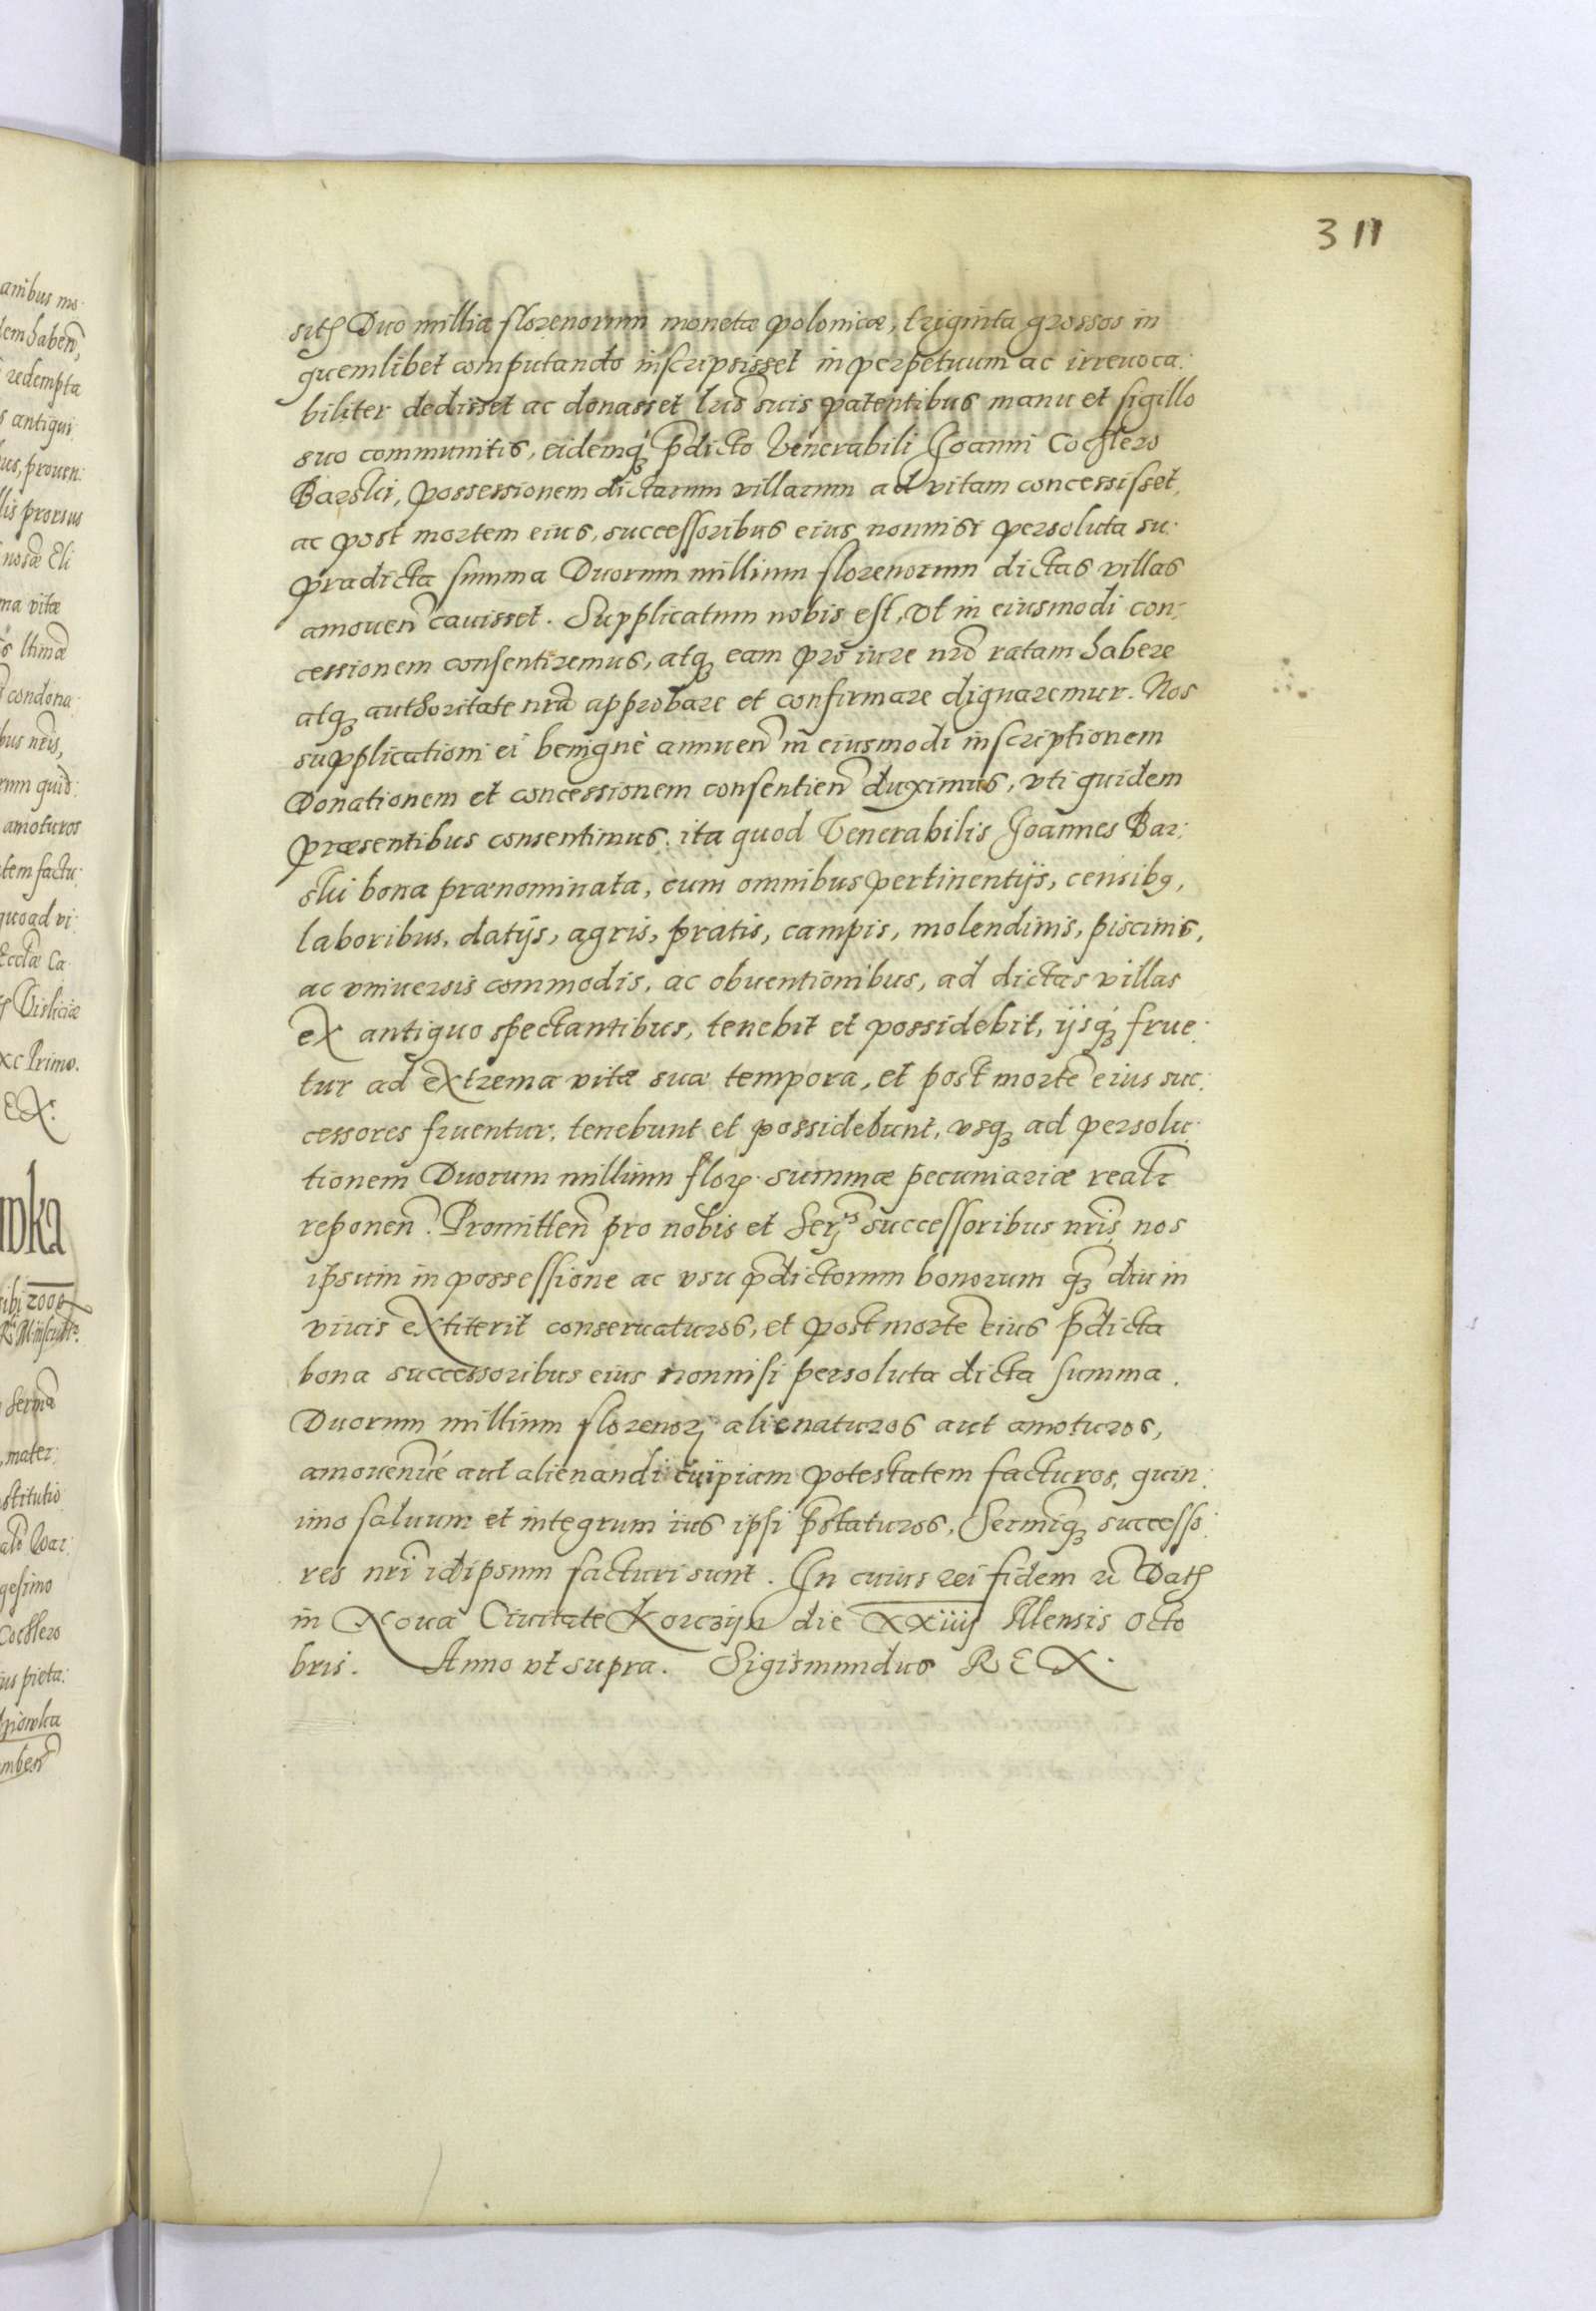 311
sitꝭ Duo millia florenorum monetæ polonicæ, triginta grossos in
quemlibet computando inscripsisset in perpetuum ac irreuoca:
biliter dedisset ac donasset lrīs suis patentibus manu et sigillo
suo communitis, eidemqꝫ p̄dicto Venerabili Joanni Cochlero
Barski, possessionem dictarum villarum ad vitam concessisset,
ac post mortem eius, successoribus eius nonnisi persoluta su:
pradicta summa Duorum millium florenorum dictas villas
amouen̄ cauisset. Supplicatum nobis est, vt in eiusmodi con:
cessionem consentiremus, atqꝫ eam pro iure nrō ratam habere
atqꝫ authoritate nrā approbare et confirmare dignaremur. Nos
supplicationi ei benignè annuen̄ in eiusmodi inscriptionem
Donationem et concessionem consentien̄ duximus, vti quidem
præsentibus consentimus. ita quod Venerabilis Joannes Bar:
ski bona prænominata, cum omnibus pertinentijs, censibꝯ,
laboribus, datijs, agris, pratis, campis, molendinis, piscinis,
ac vniuersis commodis, ac obuentionibus, ad dictas villas
ex antiquo spectantibus, tenebit et possidebit, ijsqꝫ frue:
tur ad extrema vitæ suæ tempora, et post mortē eius suc:
cessores fruentur, tenebunt et possidebunt, vsqꝫ ad persolu:
tionem Duorum millium flor. summæ pecuniariæ realr̄
reponen̄. Promitten̄ pro nobis et Ser.ᵐⁱˢ successoribus nrīs, nos
ipsum in possessione ac vsu p̄dictorum bonorum qꝫ diu in
viuis extiterit conseruaturos, et post mortē eius p̄dicta
bona successoribus eius nonnisi persoluta dicta summa.
Duorum millium florenorꝫ alienaturos aut amoturos,
amouenďue aut alienandi cuipiam potestatem facturos, quin:
imo saluum et integrum ius ipsi p̄staturos, Sermīqꝫ successo:
res nrī idipsum facturi sunt. In cuius rei fidem rc̄ Datꝭ
in Noua Ciuitate Korczijn die XXiiij Mensis Octo
bris. Anno vt supra. Sigismundus REX.